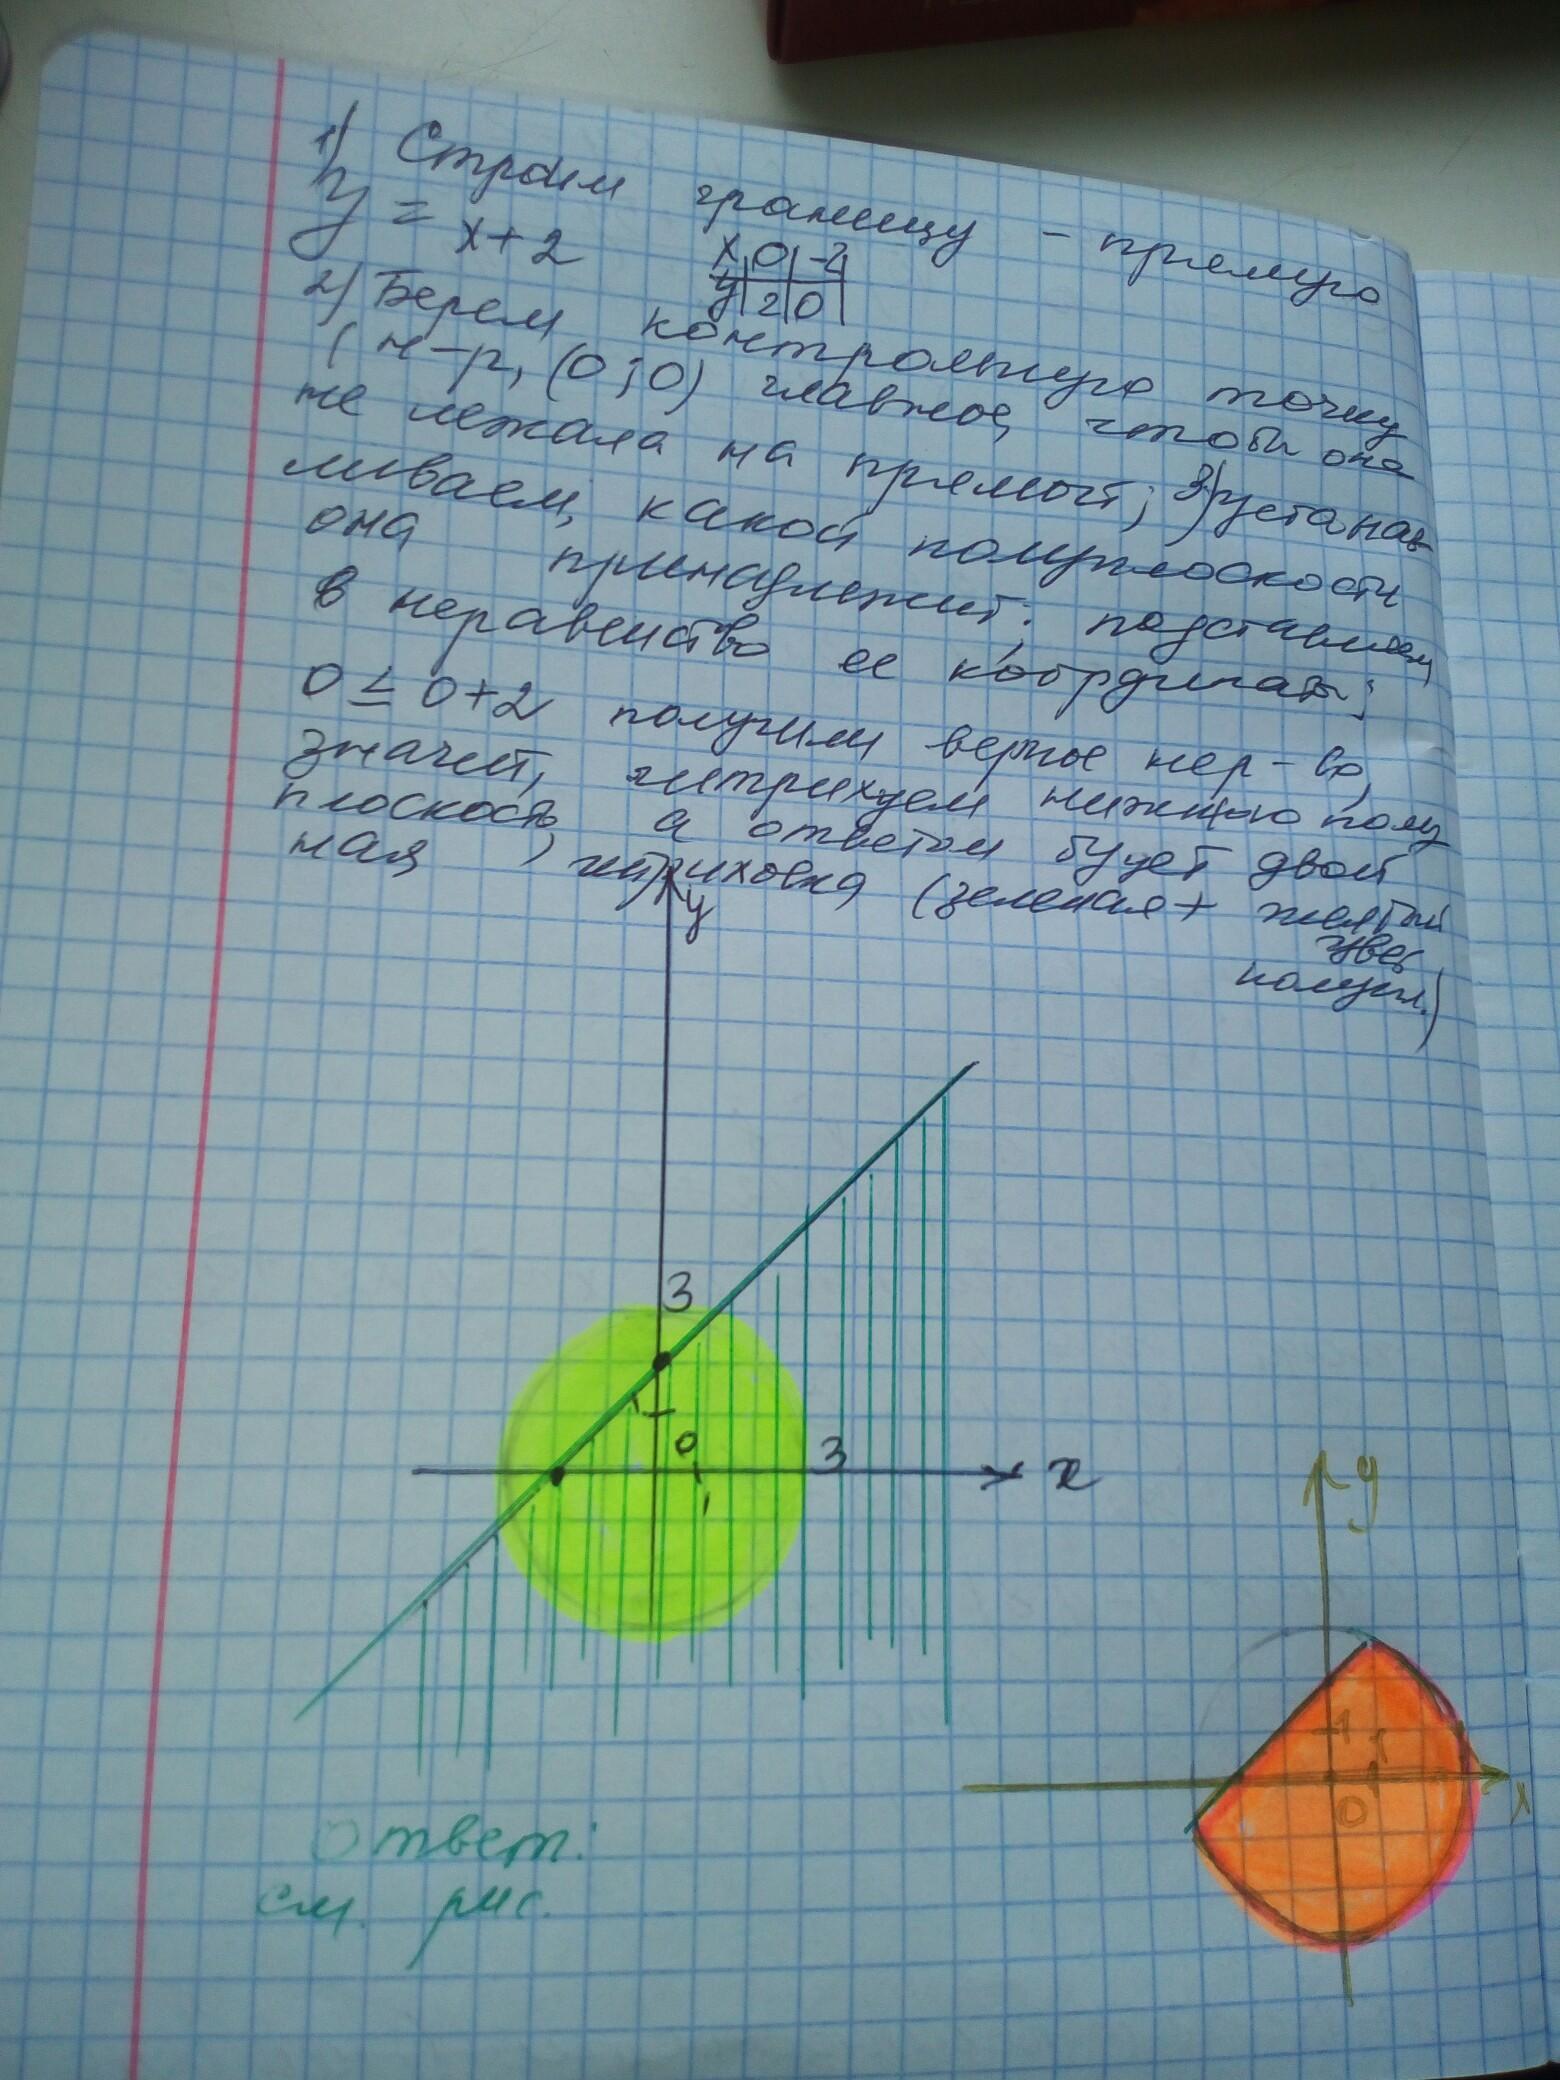 1) Строим границу - прямую
y = x+2
x 0 -2
y 2 0
2) Берем контрольную точку
( н-р, (0;0) главное, чтобы она
не лежала на прямой; 3) устанав
ливаем, какой полуплоскости
она принадлежит: подставляем
в неравенство ее координаты;
0 ≤ 0+2 получим верное нер-во,
значит, штрихуем нижнюю полу
плоскость, а ответом будет двой
ная штриховка (зеленая + желтый
цвет
полупл.)
y
3
1
0
3
x
1
y
1
1
0
x
Ответ:
см. рис.